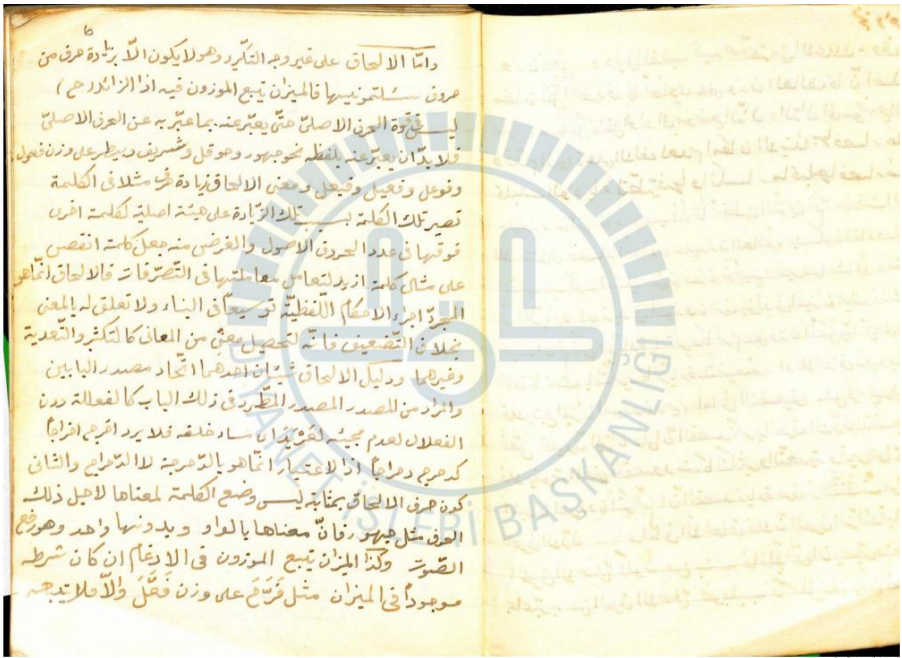 ٥
وامّا الالحاق على غير وجه التكرير وهو لا يكون الّا بزيادة حرف من
حروف سئلتمونيها فالميزان يتبع الموزون فيه اذ الزائد رح
ليس في قوة الحرف الاصلىّ حتّى يعبّر عنه بما عبّر به عن الحرف الاصلىّ
فلا بدّ ان يعبّر عنه بلفظه نحو جهور وحوقل وشريف وبيطر على وزن فعول
وفوعل وفعيل وفيعل ومعنى الالحاق زيادة مثلا فى الكلمة
تصير تلك الكلمة بسبب تلك الزّيادة على هيئة اصلية لكلمة اخرى
فوقها فى عدد الحروف الاصول والغرض منه جعل كلمة انقص
على مثال كلمة ازيد لتعامل معاملتها فى التّصرّفات فالالحاق انّما هو
لمجرّد اجراء الاحكام اللّفظيّة توسيعا فى البناء ولا تعلق له بالمعنى
بخلاف التّضعيف فانّه لتحصيل معنًى من المعانى كالتكثر والتّعدية
وغيرهما ودليل الالحاق شيئان احدهما اتّحاد مصدر البابين
والمراد من المصدر المصدر المطّرد فى ذلك الباب كالفعللة دون
الفعلال لعدم مجيئه فلا يرد اخرج اخراجًا
كدحرج دحراجًا اذ الاعتبار انّما هو بالدّحرجة لا الدّحراج والثانى
كون حرف الالحاق بمثابة ليس وضع الكلمة لمعناها لاجل ذلك
الحرف مثل جهور فانّ معناها بالواو وبدونها واحد وهو رفع
الصّوت وكذا الميزان يتبع الموزون فى الادغام ان كان شرطه
موجودًا فى الميزان مثل على وزن فَعَّلَ والّا فلا يتبعه
DİYANET İŞLERİ BAŞKANLIĞI